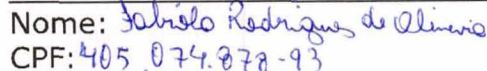 Nome: Fabiola Rodrigues de Oliveira
CPF: 405 074.878-93